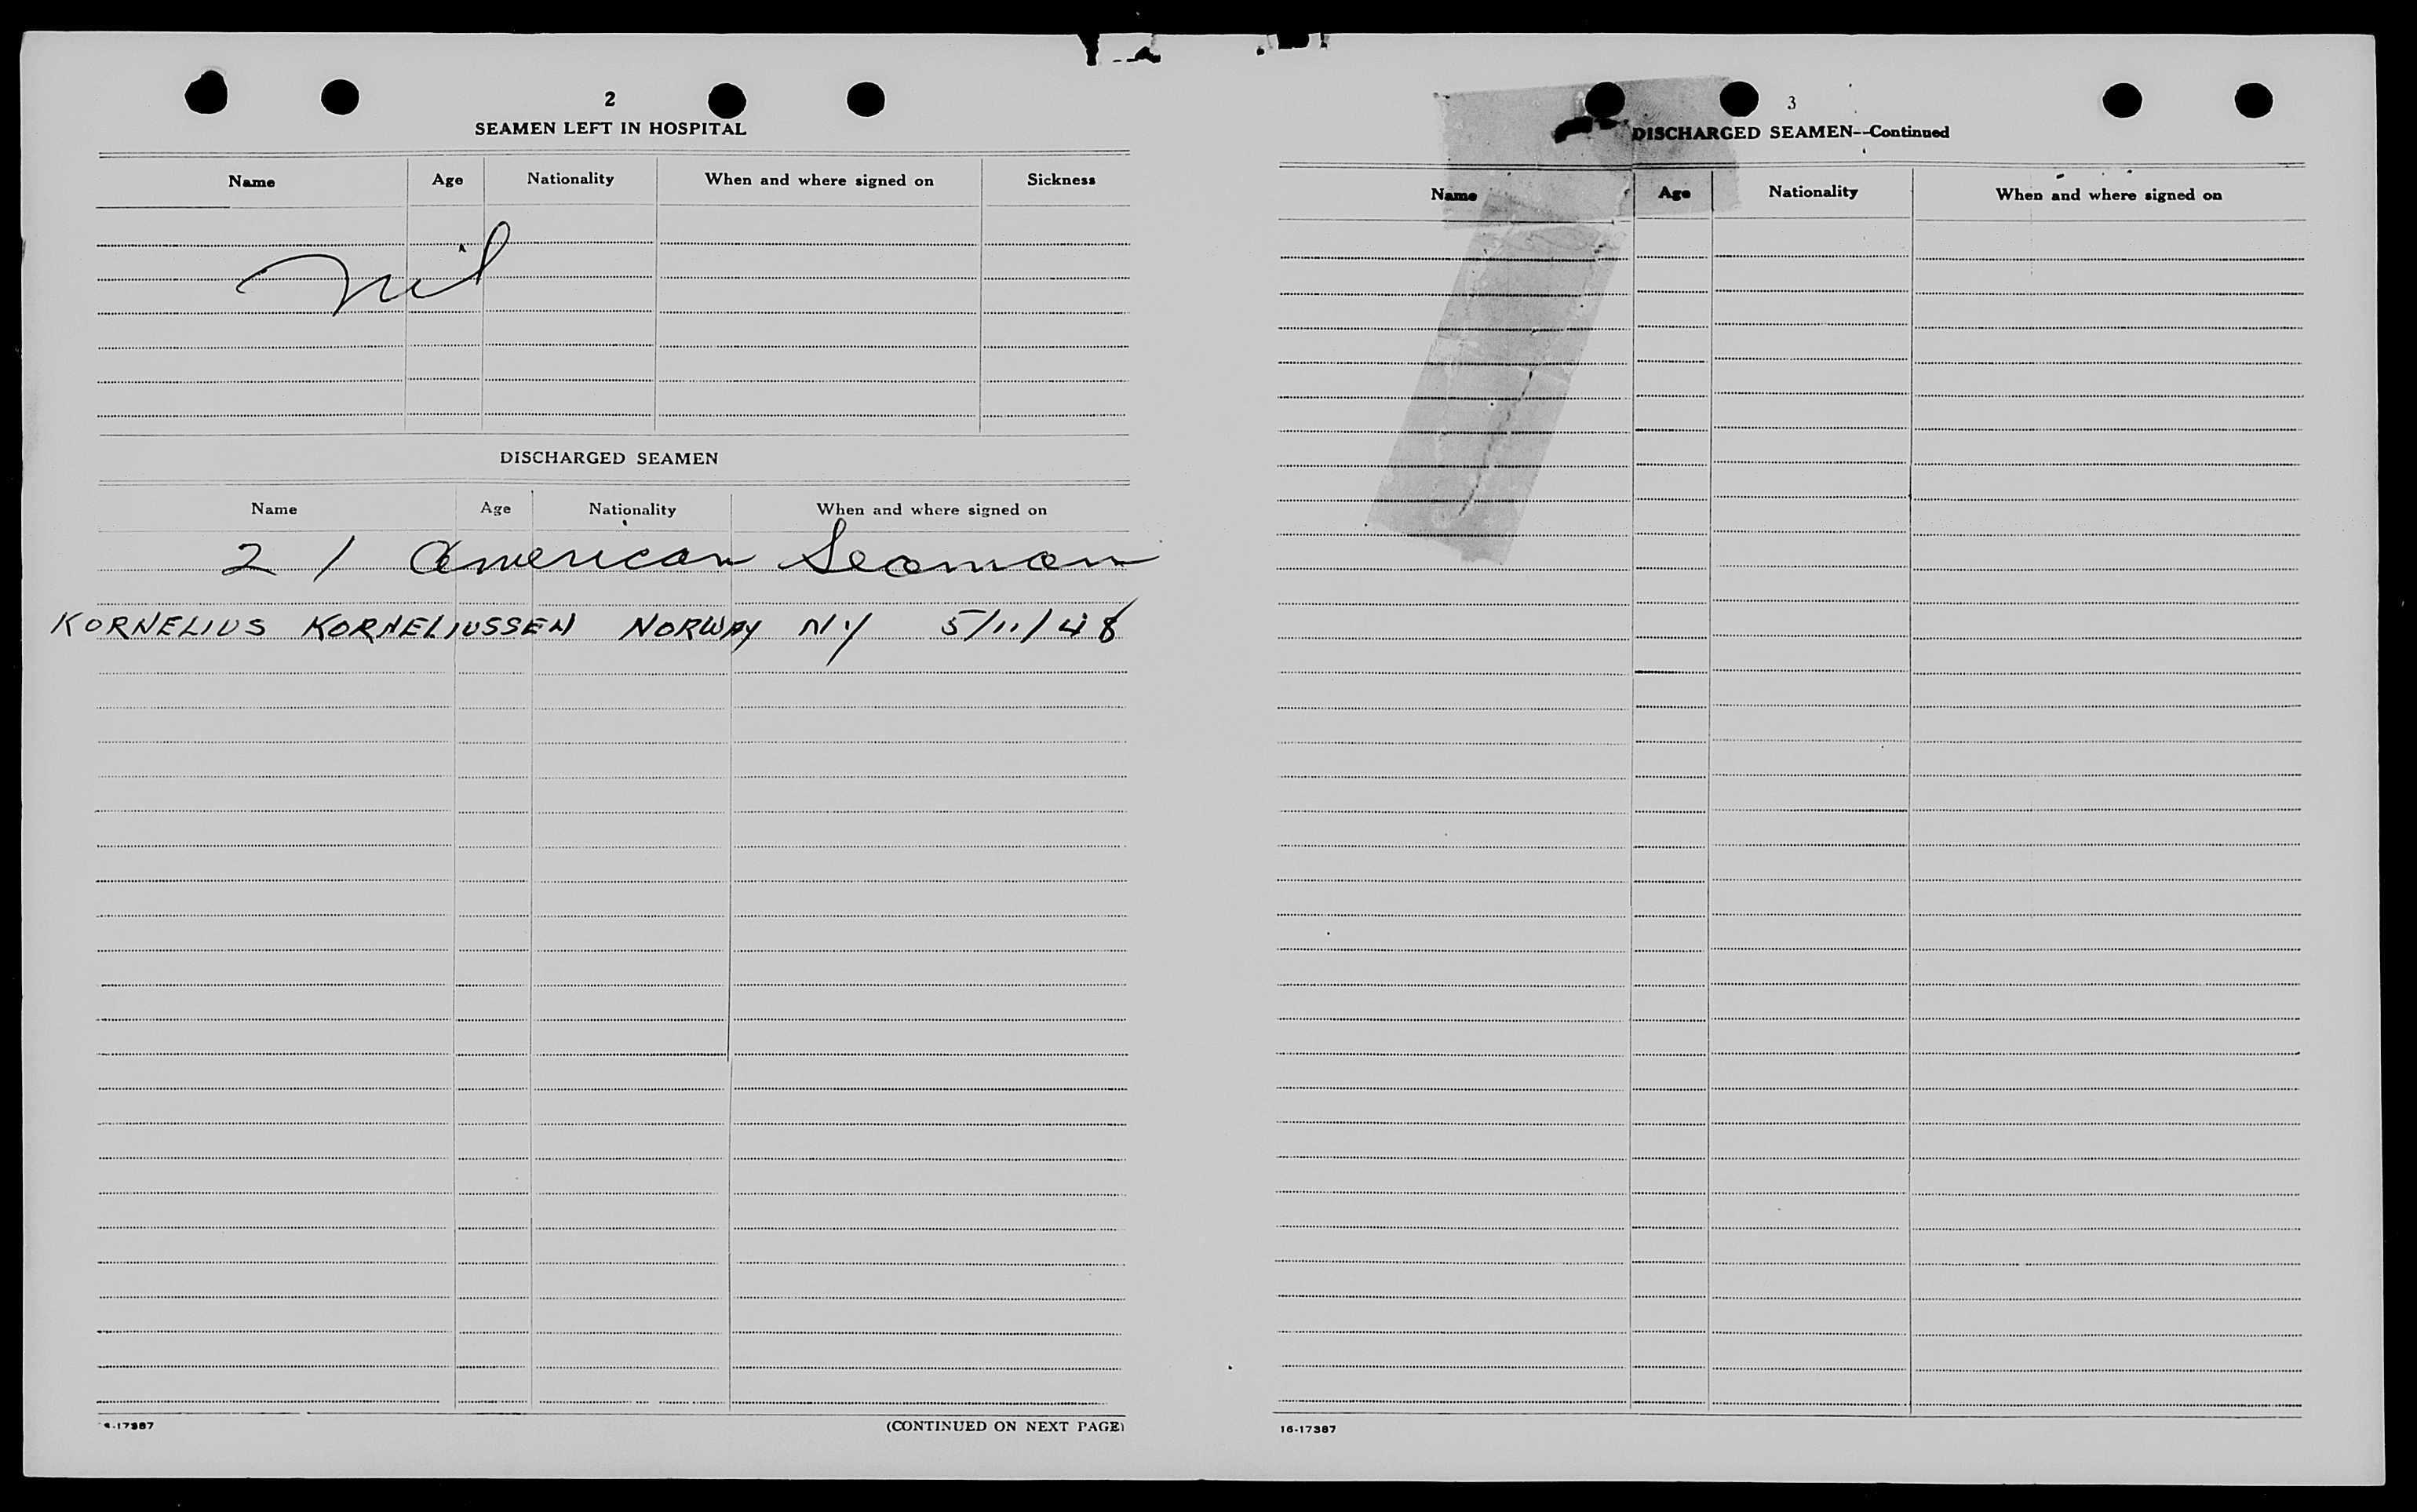 2
SEAMEN LEFT IN HOSPITAL
Name Age Nationality When and where signed on Sickness
nil
DISCHARGED SEAMEN
Name Age Nationality When and where signed on
21 American Seaman
KORNELIUS KORNELIUSSEN NORWAY NY 5/11/48
(CONTINUED ON NEXT PAGE)
3
DISCHARGED SEAMEN--Continued
Name Age Nationality When and where signed on
16-17387